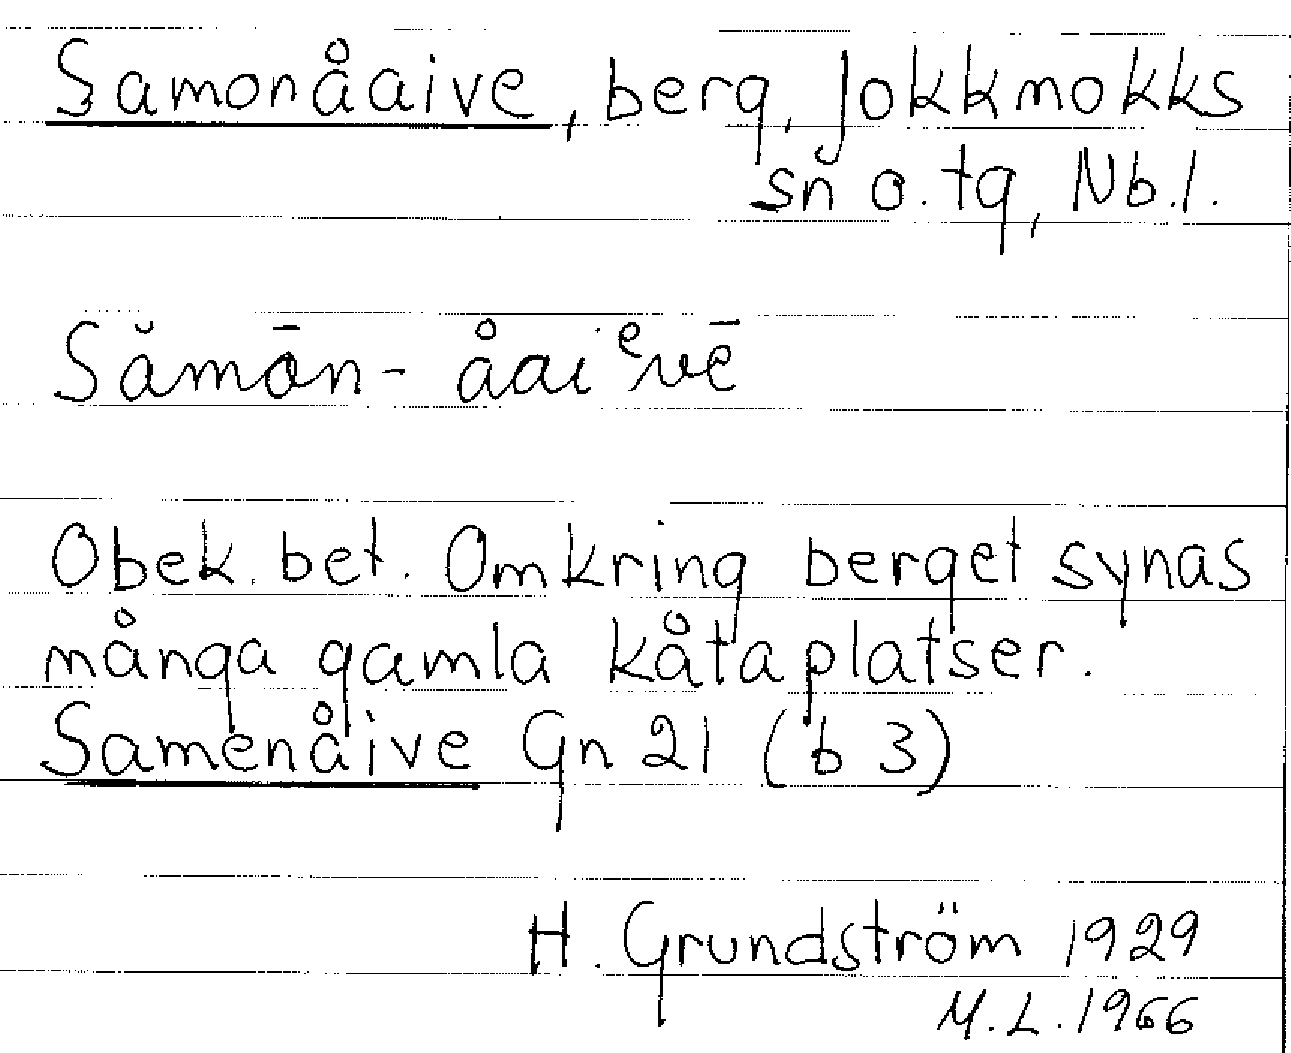 Samonåaive, berg, Jokkmokks
sn o. tg, Nb.l.
Sămōn- åaiᵉvē
Obek. bet. Omkring berget synas
många gamla kåtaplatser.
Samenåive Gn 21 (b 3)
H. Grundström 1929
M.L. 1966